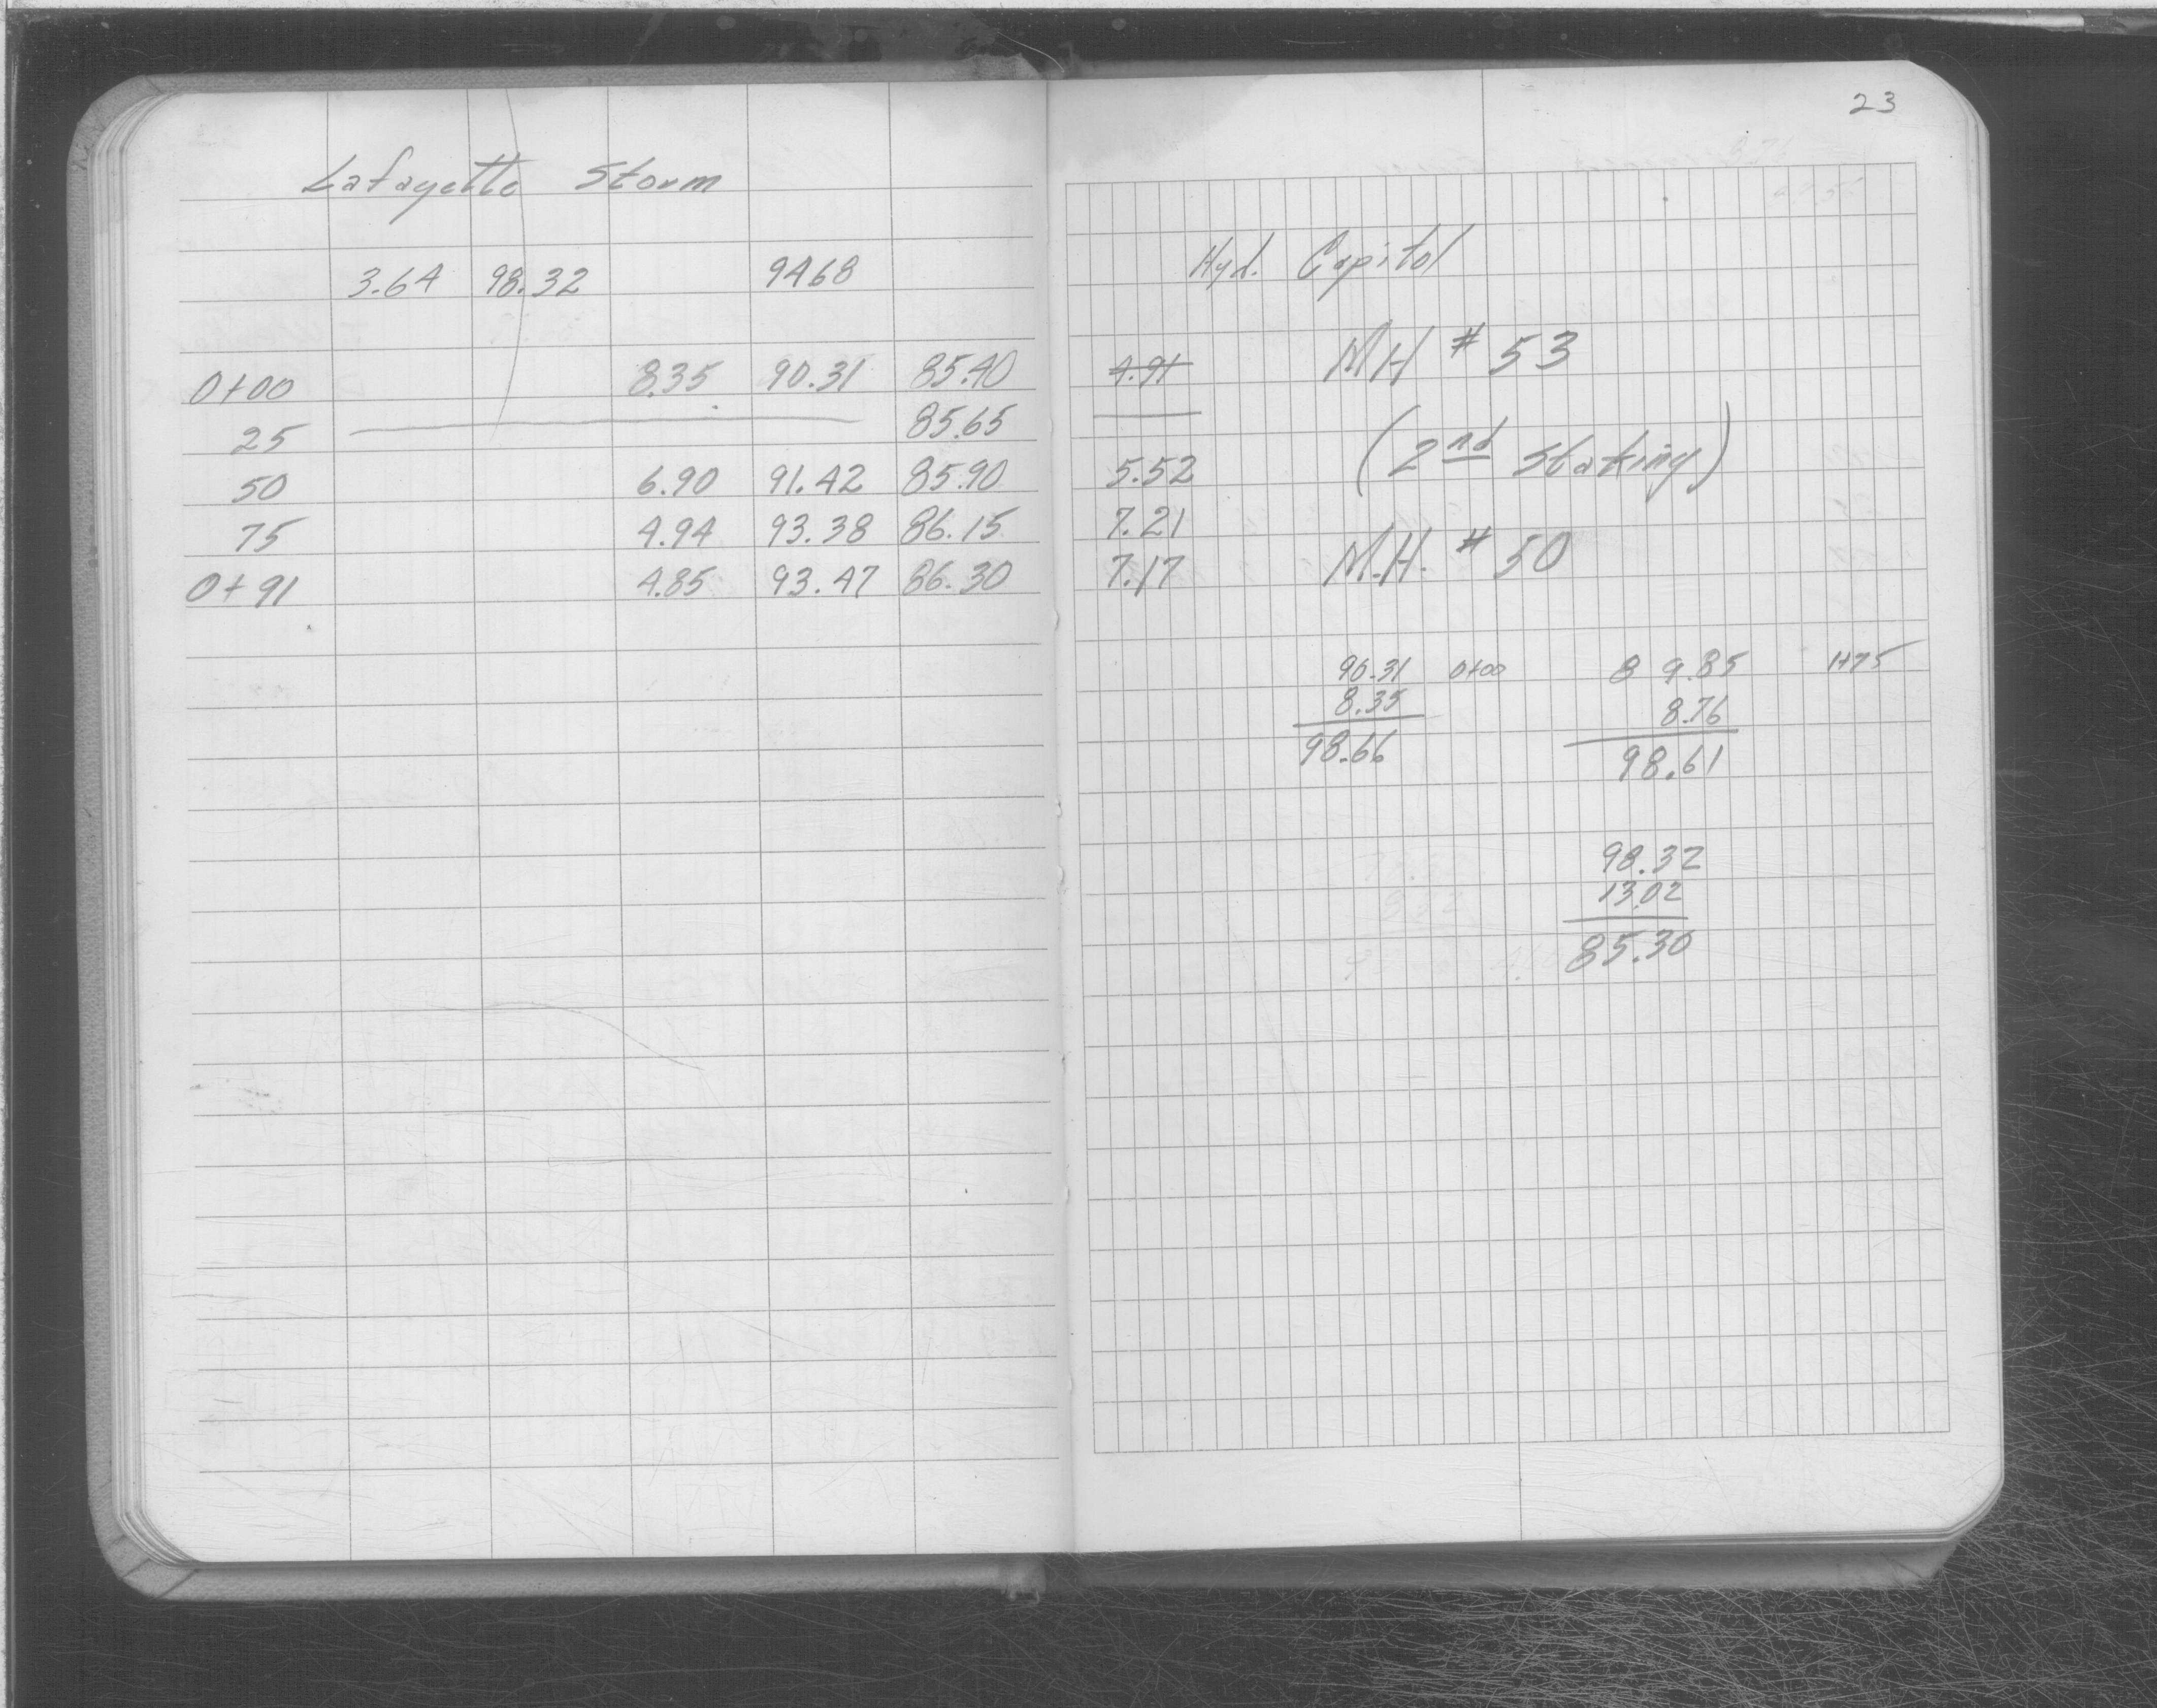 Lafayette Storm
3.64 98.32 9468
0+00 8.35 90.31 85.40
25 85.65
50 6.90 91.42 85.90
75 4.94 93.38 86.15
0+91 4.85 93.47 86.30
23
Hyd. Capitol
4.91 MH # 53
(2nd Staking)
5.52
7.21
7.17 M.H. # 50
90.31 0+00 89.85 1+75
8.35 8.76
98.66 98.61
98.32
13.02
85.30